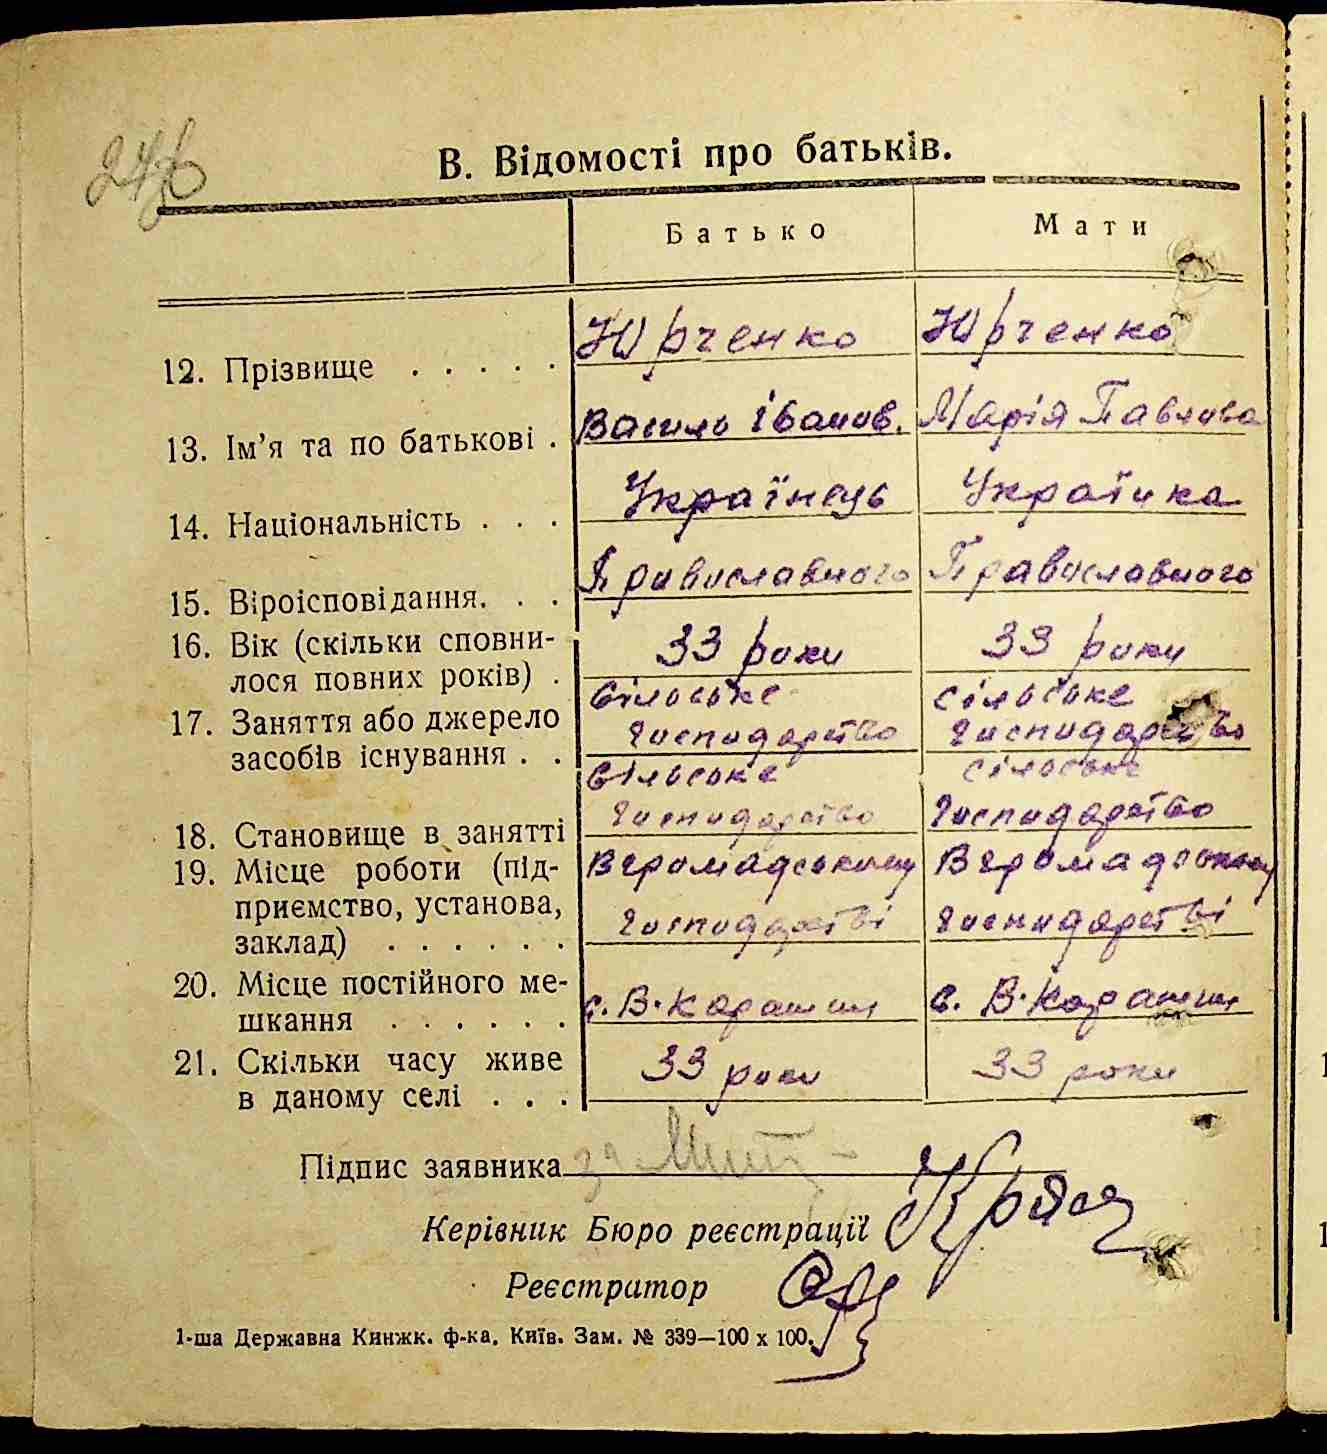 246
В. Відомості про батьків.
Батько Мати
12. Прізвище . . . . . Юрченко Юрченко
13. Ім'я та по батькові . Василь Іванов. Марія Павлова
14. Національність . . . Українець Украіика
15. Віроісповідання. . . Православного Православного
16. Вік (скільки сповни- 33 роки 33 роки
лося повних років) .
17. Заняття або джерело сільське сільське
засобів існування . . господарство господарство
сільське сільське
18. Становище в занятті господарство господарство
19. Місце роботи (під- В громадському В громадському
приємство, установа, господарстві господарстві
заклад) . . . . . .
20. Місце постійного ме- с. В. Каратии с. В. Каратии
шкання . . . . . .
21. Скільки часу живе 33 роки 33 роки
в даному селі . . .
Підпис заявника за
Керівник Бюро реєстрації
Реєстратор
1-ша Державна Кинжк. ф-ка, Київ. Зам. № 339—100 х 100.